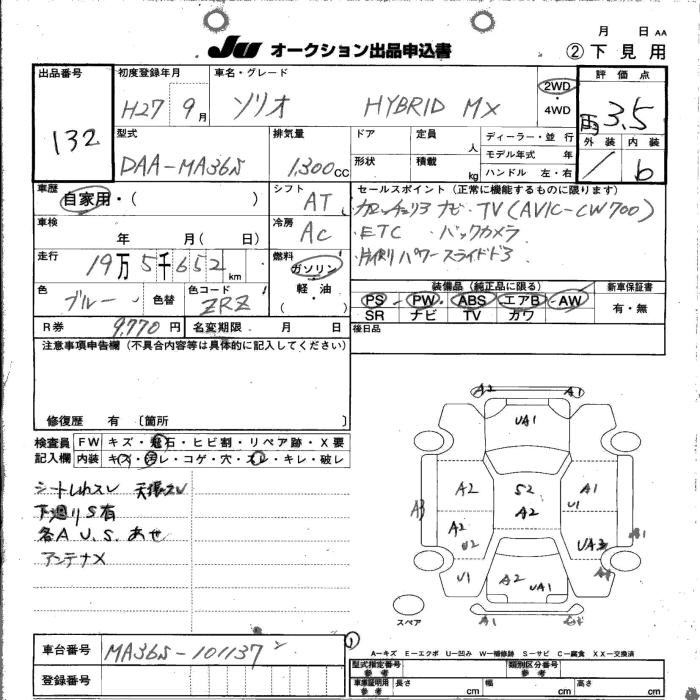 月 日 AA
JU オークション出品申込書
②下見用
出品番号 132
初度登録年月 H27 9月
車名・グレード ソリオ HYBRID MX
2WD ・ 4WD
評価点 雨 3.5
型式 DAA-MA36S
排気量 1,300CC
ドア 定員 人
形状 積載 kg
ディーラー・並行
モデル年式 年
ハンドル 左・右
外装 内装 b
車歴 自家用・( )
シフト AT
セールスポイント(正常に機能するものに限ります)
ナビ・TV(AVIC-CW700)
・ETC ・バックカメラ
・片側パワースライドドア
車検 年 月( 日)
冷房 AC
走行 19万5千652km
燃料 ガソリン・軽油・( )
色 ブルー 色替 色コード ZRZ
装備品(純正品に限る)
PS・PW・ABS・エアB・AW
SR ナビ TV カワ
新車保証書 有・無
R券 9,770円 名変期限 月 日
後日品
注意事項申告欄(不具合内容等は具体的に記入してください)
修復歴 有 〔箇所 〕
検査員記入欄
FW キズ・飛石・ヒビ割・リペア跡・X要
内装 キズ・汚レ・コゲ・穴・スレ・キレ・破レ
シートしわスレ 天張スレ
下廻りS有
各A U.S. あせ
アンテナX
A2 A1
UA1
A2 S2 A1
A3 A2 U1
A2 U2 UA3 A1
U1 A2 UA1
A1
スペア
A-キズ E-エクボ U-凹み W-補修跡 S-サビ C-腐食 XX-交換済
車台番号 MA36S-101137
登録番号
型式指定番号 参考 類別区分番号 参考
車庫証明用 参考 長さ cm 幅 cm 高さ cm